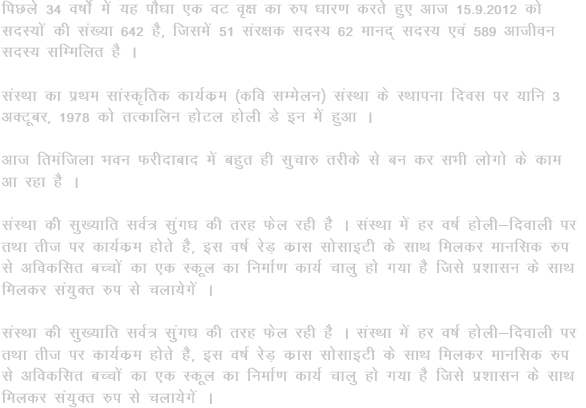 पिछले 34 वर्षो में यह पौधा एक वट वृक्ष का रुप धारण करते हुए आज 15.9.2012 को
सदस्यों की संख्या 642 है, जिसमें 51 संरक्षक सदस्य 62 मानद् सदस्य एवं 589 आजीवन
सदस्य सम्मिलित है ।
संस्था का प्रथम सांस्कृतिक कार्यकम (कवि सम्मेलन) संस्था के स्थापना दिवस पर यानि 3
अक्टूबर, 1978 को तत्कालिन होटल होली डे इन में हुआ ।
आज तिमंजिला भवन फरीदाबाद में बहुत ही सुचारु तरीके से बन कर सभी लोगो के काम
आ रहा है ।
संस्था की सुख्याति सर्वत्र सुंगघ की तरह फेल रही है । संस्था में हर वर्ष होली–दिवाली पर
तथा तीज पर कार्यकम होते है, इस वर्ष रेड़ कास सोसाइटी के साथ मिलकर मानसिक रुप
से अविकसित बच्चों का एक स्कूल का निर्माण कार्य चालु हो गया है जिसे प्रशासन के साथ
मिलकर संयुक्त रुप से चलायेगें ।
संस्था की सुख्याति सर्वत्र सुंगघ की तरह फेल रही है । संस्था में हर वर्ष होली–दिवाली पर
तथा तीज पर कार्यकम होते है, इस वर्ष रेड़ कास सोसाइटी के साथ मिलकर मानसिक रुप
से अविकसित बच्चों का एक स्कूल का निर्माण कार्य चालु हो गया है जिसे प्रशासन के साथ
मिलकर संयुक्त रुप से चलायेगें ।